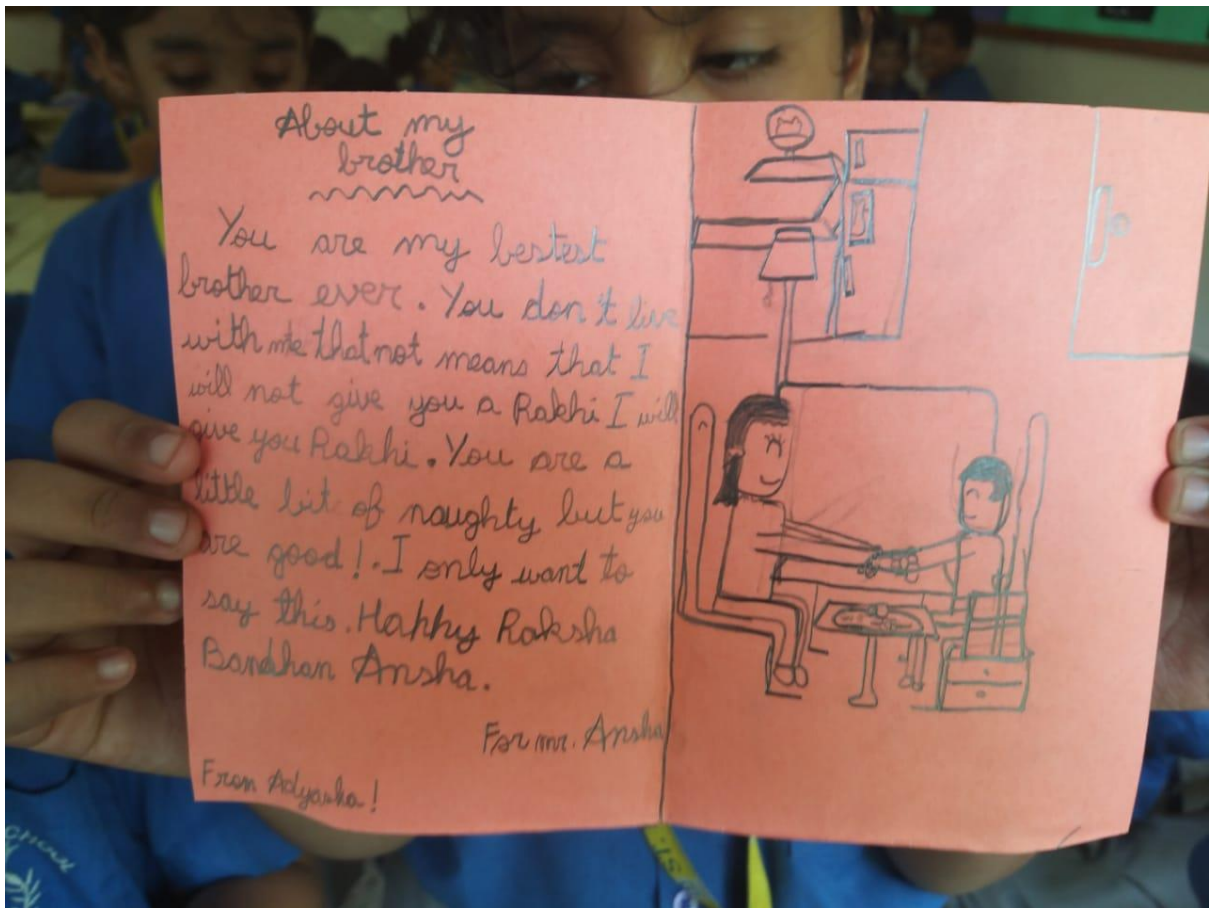 About my
brother
You are my bestest
brother ever. You don't live
with me that not means that I
will not give you a Rakhi I will
give you Rakhi. You are a
little bit of naughty but you
are good!. I only want to
say this. Happy Raksha
Bandhan Ansha.
For mr. Ansha
From Adyasha!